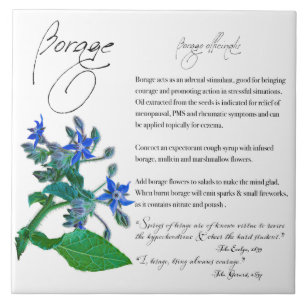 Borage
Borago officinalis
Borage acts as an adrenal stimulant, good for bringing
courage and promoting action in stressful situations.
Oil extracted from the seeds is indicated for relief of
menopausal, PMS and rheumatic symptoms and can
be applied topically for eczema.
Concoct an expectorant cough syrup with infused
borage, mullein and marshmallow flowers.
Add borage flowers to salads to make the mind glad.
When burnt borage will emit sparks & small fireworks,
as it contains nitrate and potash .
"Sprigs of borage are of known virtue to revive
the hypochondriac & cheer the hard student."
~John Evelyn, 1699
"I, borage, bring always courage."
~John Gerard, 1597